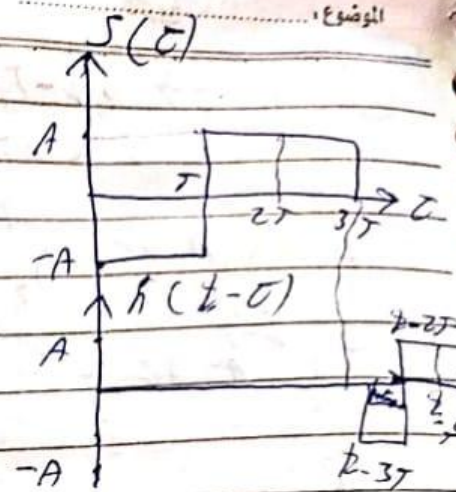 الموضوع:
S(τ)
A
T
2T
3T
τ
-A
h(t-τ)
A
t-2T
t-3T
-A